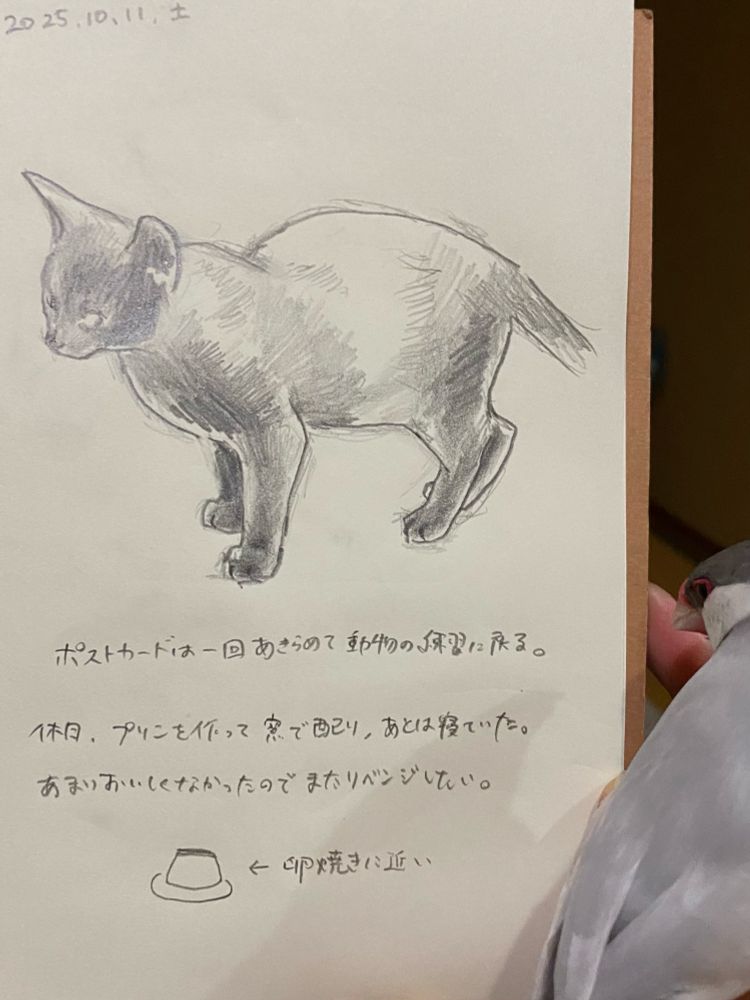 2025.10.11.土
ポストカードは一回あきらめて動物の練習に戻る。
休日、プリンを作って寮で配り、あとは寝ていた。
あまりおいしくなかったのでまたリベンジしたい。
← 卵焼きに近い